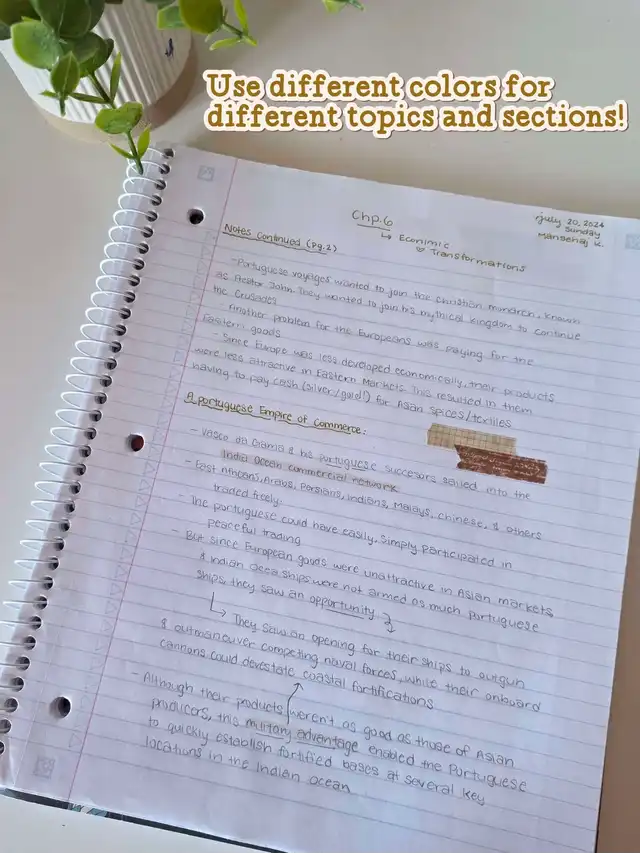 Use different colors for
different topics and sections!
Chp.6
↳ Econimic
Transformations
July 20, 2024
Sunday
Mansehaj K.
Notes Continued (Pg.2)
-Portuguese voyages wanted to join the Christian monarch, known
as Prestor John. They wanted to join his mythical kingdom to continue
the crusades
-Another problem for the Europeans was paying for the
Eastern goods
-Since Europe was less developed economically, their products
were less attractive in Eastern Markets. This resulted in them
having to pay cash (silver/gold!) for Asian spices/textiles
A portuguese Empire of Commerce:
- Vasco da Gama & his portuguese succesors sailed into the
India Ocean commercial network
- East Africans, Arabs, Persians, Indians, Malays, Chinese, & others
traded freely.
- The portuguese could have easily, simply participated in
peaceful trading
- But since European goods were unattractive in Asian markets
& Indian Ocea ships were not armed as much portuguese
ships, they saw an opportunity
↳ They saw an opening for their ships to outgun
& outmaneuver competing naval forces, while their onboard
cannons could devestate coastal fortifications
- Although their products weren't as good as those of Asian
producers, this military advantage enabled the Portuguese
to quickly establish fortified bases at several key
locations in the Indian Ocean